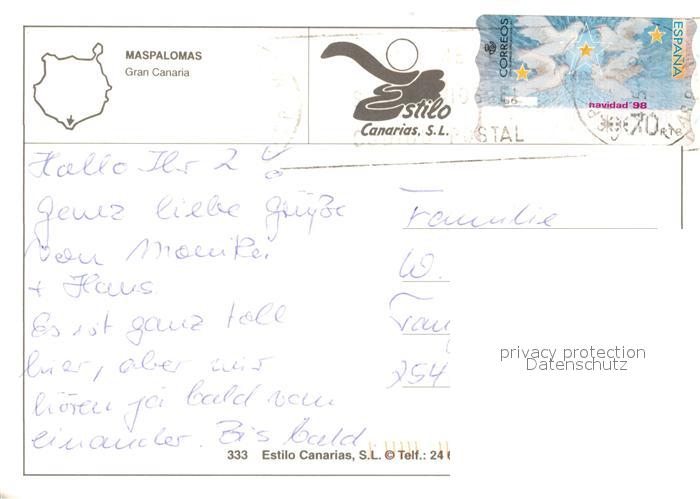 MASPALOMAS
Gran Canaria
Estilo
Canarias, S.L.
CORREOS
ESPAÑA
navidad '98
70 PTS
POSTAL
Hallo Ihr 2!
ganz liebe Grüße
von Monika
+ Hans
Es ist ganz toll
hier, aber wir
hören ja bald von
einander. Bis bald
Familie
W.
254
privacy protection
Datenschutz
333 Estilo Canarias, S.L. © Telf.: 24 6